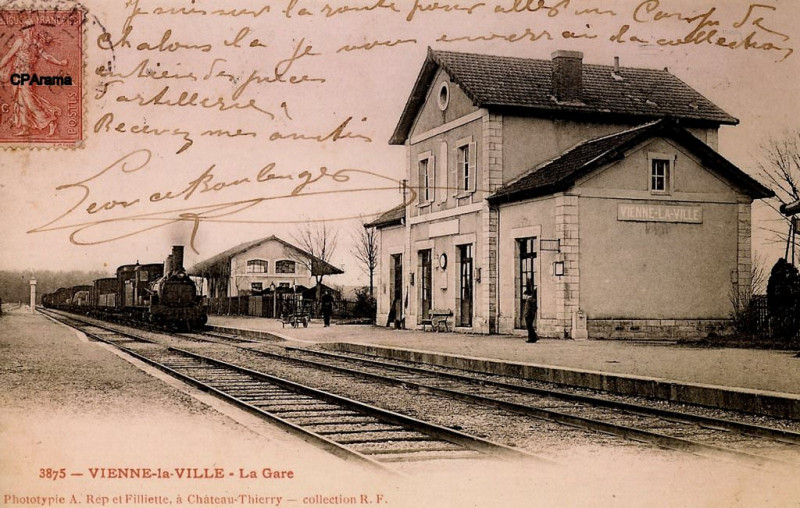 RÉPUBLIQUE FRANÇAISE
CPArama
POSTES
Je suis sur la route pour aller au Camp de
Chalons il a je vous enverrai de la collection
entière de pièces
d'artillerie
Recevez mes amitiés
Boulanger
VIENNE-LA-VILLE
3875 - VIENNE-la-VILLE - La Gare
Phototypie A. Rep et Filliette, à Château-Thierry - collection R. F.